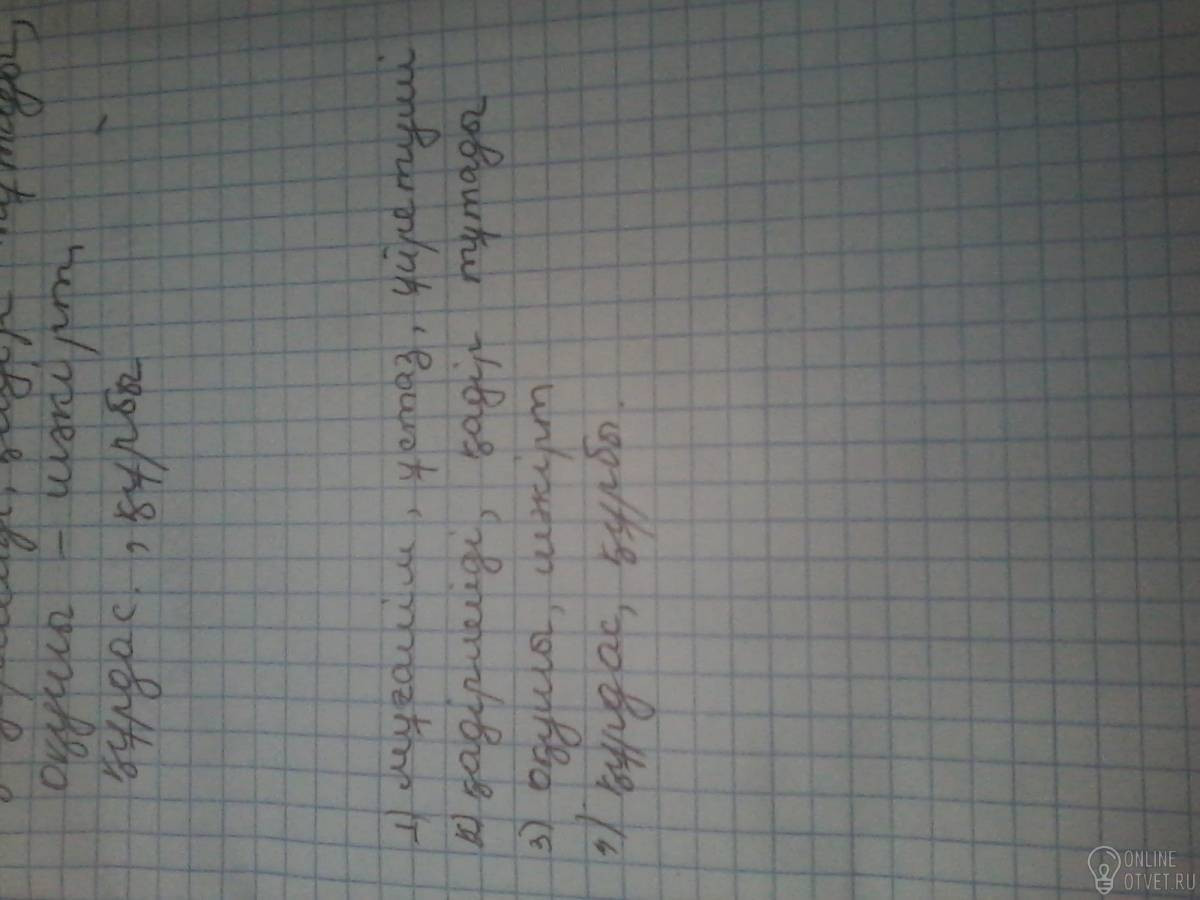 қадір тұтады,
оқушы – шәкірт,
құрдас. , құрбы
1) мұғалім, ұстаз, үйретуші
2) қадірлейді, қадір тұтады
3) оқушы, шәкірт
4) құрдас, құрбы.
ONLINE
OTVET.RU